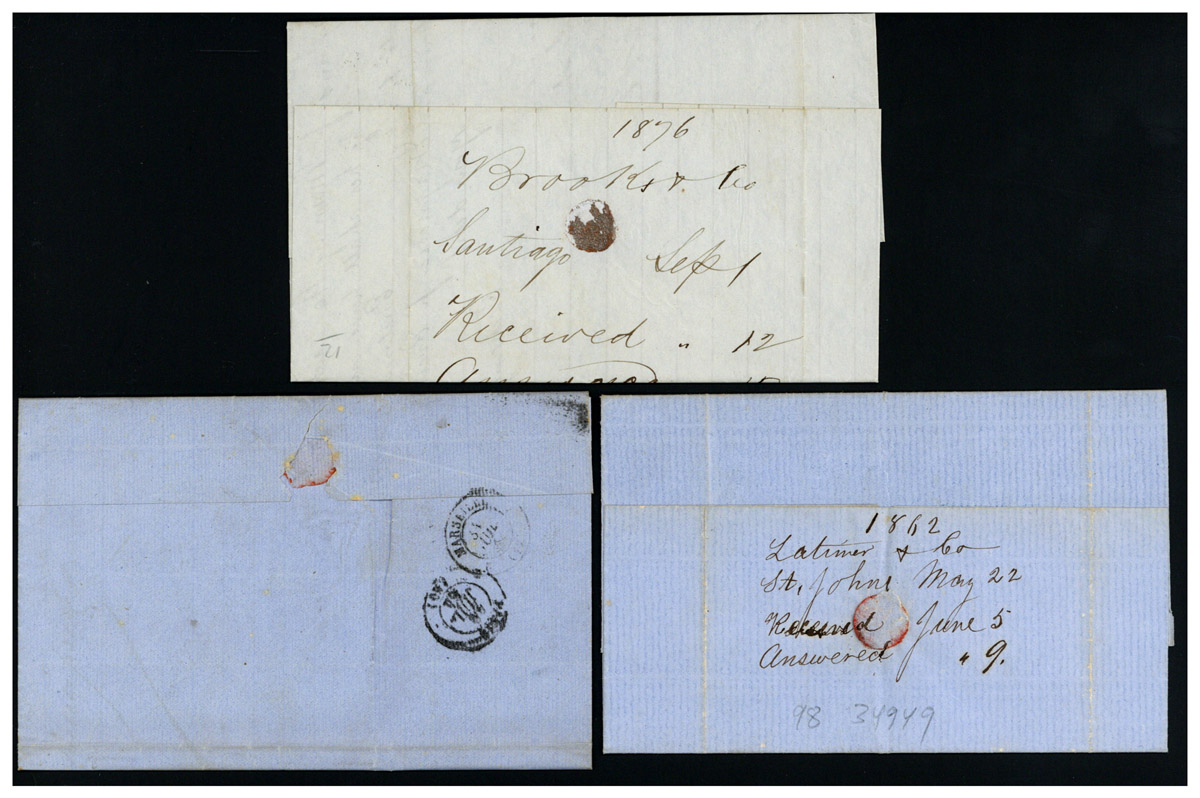 1876
Brooks & Co
Santiago Sep 1
Received " 12
21
MARSEILLE
JUIL
1862
Latimer & Co
St, Johns May 22
Received June 5
Answered " 9.
98 34949